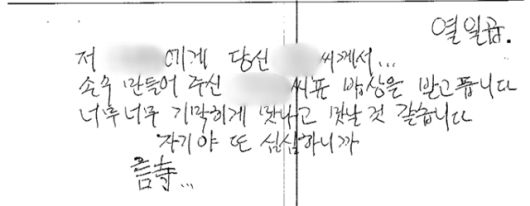 열일곱.
저 에게 당신 씨께서...
손수 만들어 주신 씨표 밥상을 받고픕니다
너무너무 기막히게 맛나고 맛날 것 같습니다
자기야 또 심심하니까